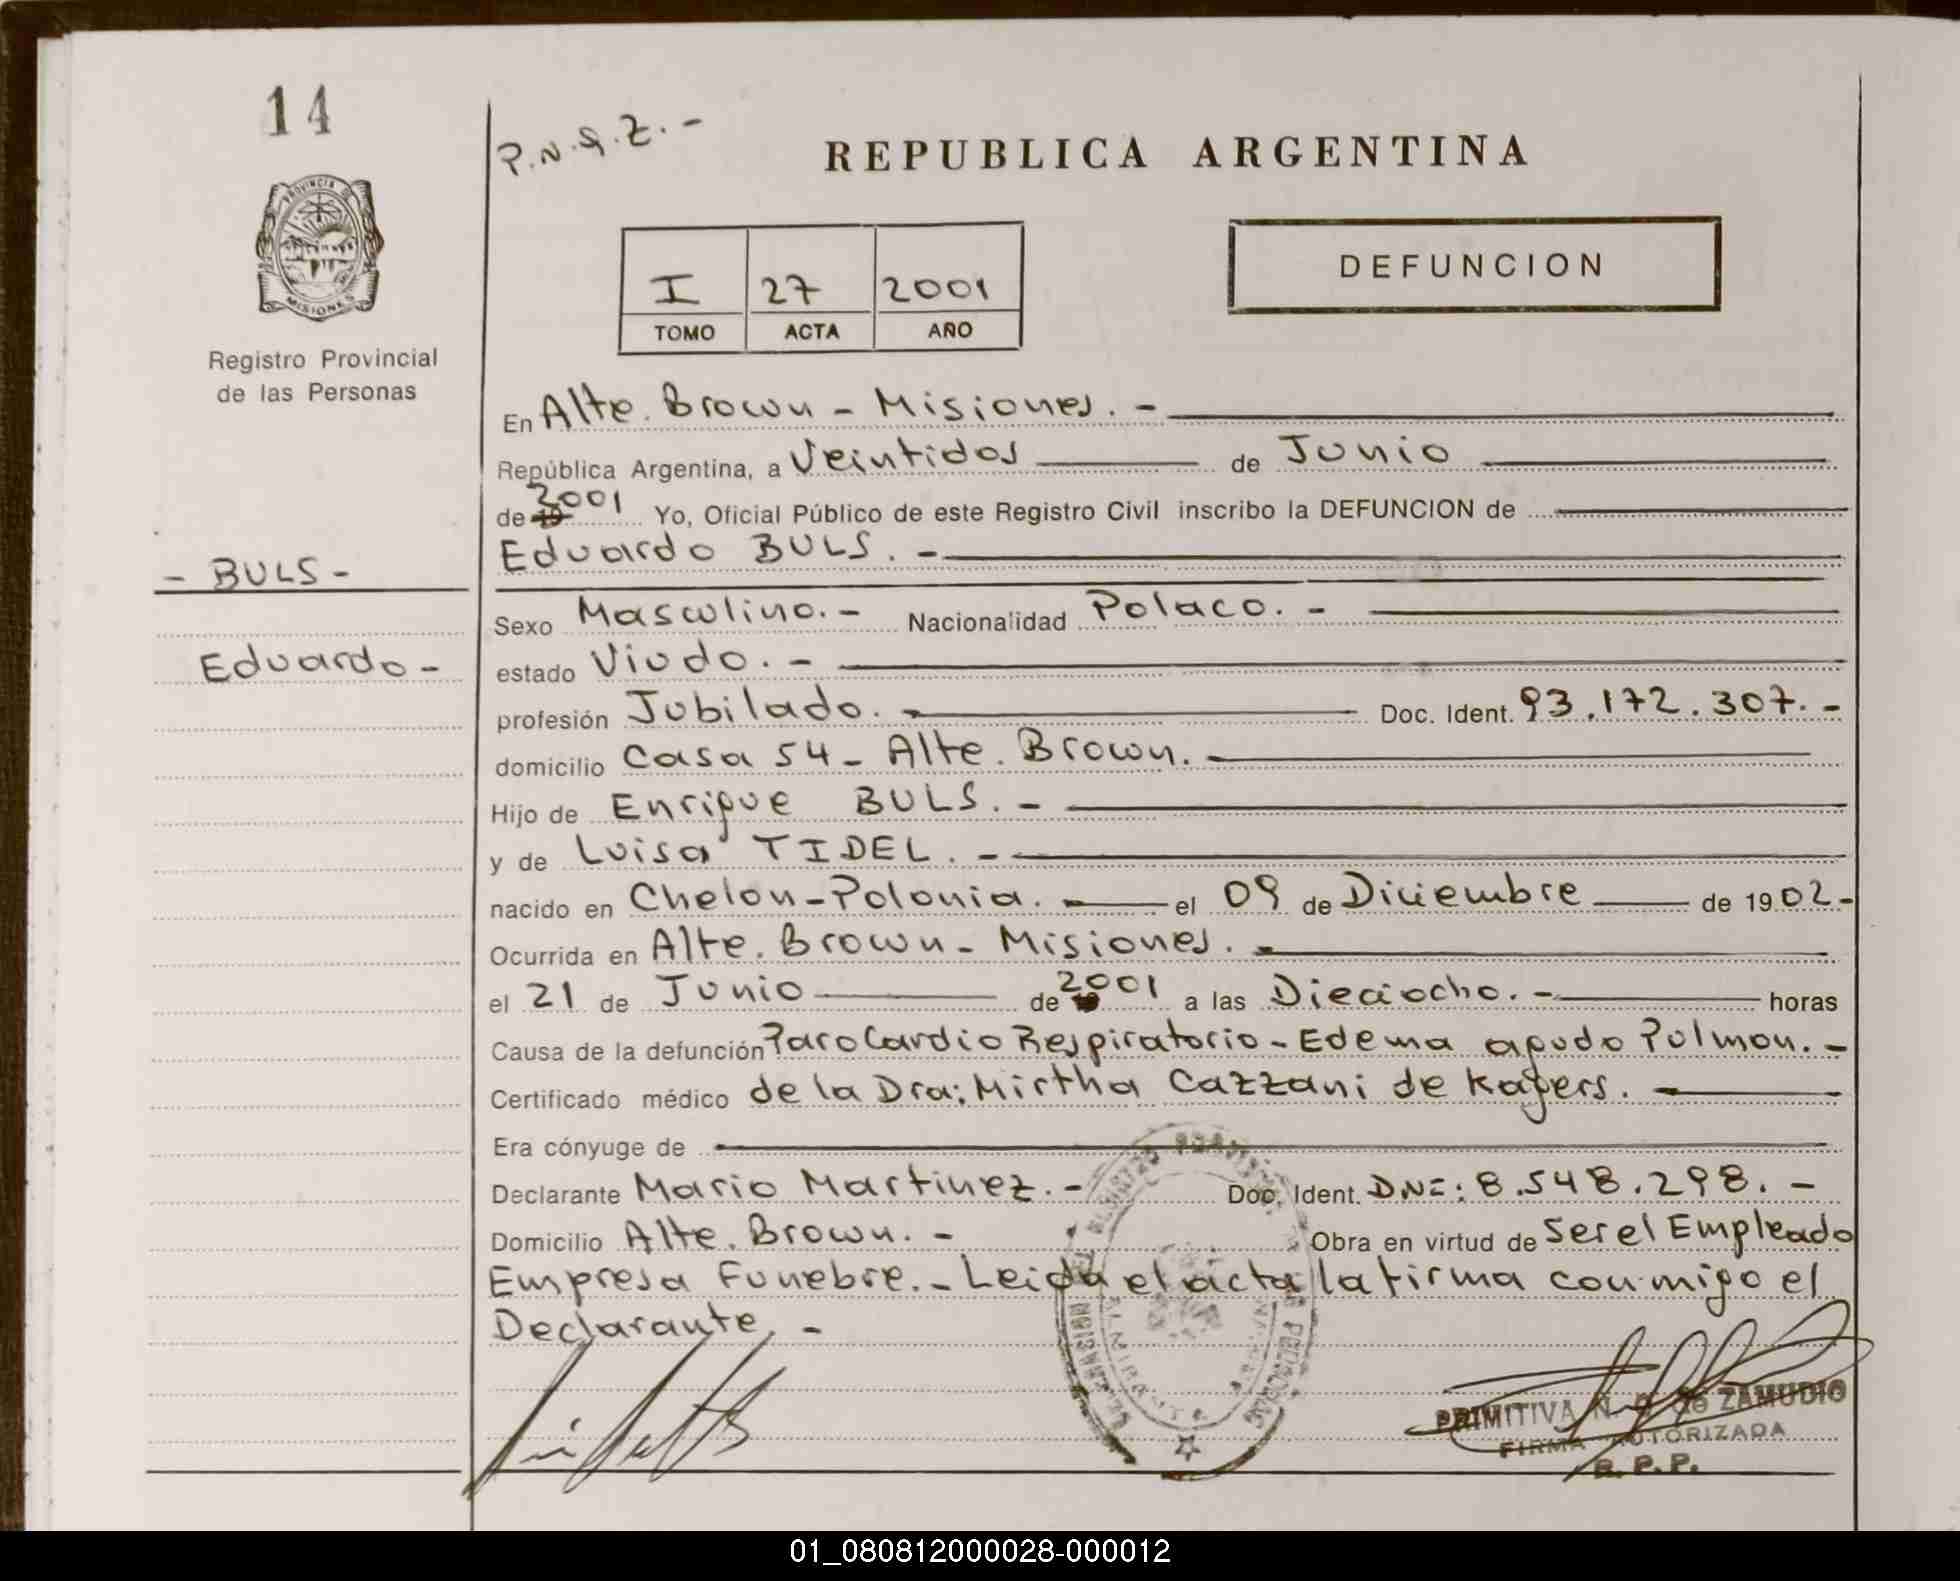 14
P.N.G.Z. -
REPUBLICA ARGENTINA
PROVINCIA DE
MISIONES
Registro Provincial
de las Personas
I 27 2001
TOMO ACTA AÑO
DEFUNCION
En Alte. Brown - Misiones. -
República Argentina, a Veintidos de Junio
de 19 2001 Yo, Oficial Público de este Registro Civil inscribo la DEFUNCION de
- BULS -
Eduardo BULS. -
Sexo Masculino. - Nacionalidad Polaco. -
Eduardo -
estado Viudo. -
profesión Jubilado. - Doc. Ident. 93.172.307. -
domicilio Casa 54 - Alte. Brown. -
Hijo de Enrique BULS. -
y de Luisa TIDEL. -
nacido en Chelon - Polonia. - el 09 de Diciembre de 1902. -
Ocurrida en Alte. Brown - Misiones. -
el 21 de Junio de 2001 a las Dieciocho. - horas
Causa de la defunción Paro Cardio Respiratorio - Edema agudo Pulmon. -
Certificado médico de la Dra; Mirtha Cazzani de Kagers. -
Era cónyuge de
Declarante Mario Martinez. - Doc. Ident. DNI: 8.548.298. -
Domicilio Alte. Brown. - Obra en virtud de Ser el Empleado
Empresa Funebre. - Leida el acta la firma conmigo el
Declarante. -
PRIMITIVA N. G. de ZAMUDIO
FIRMA AUTORIZADA
R. P. P.
01_080812000028-000012